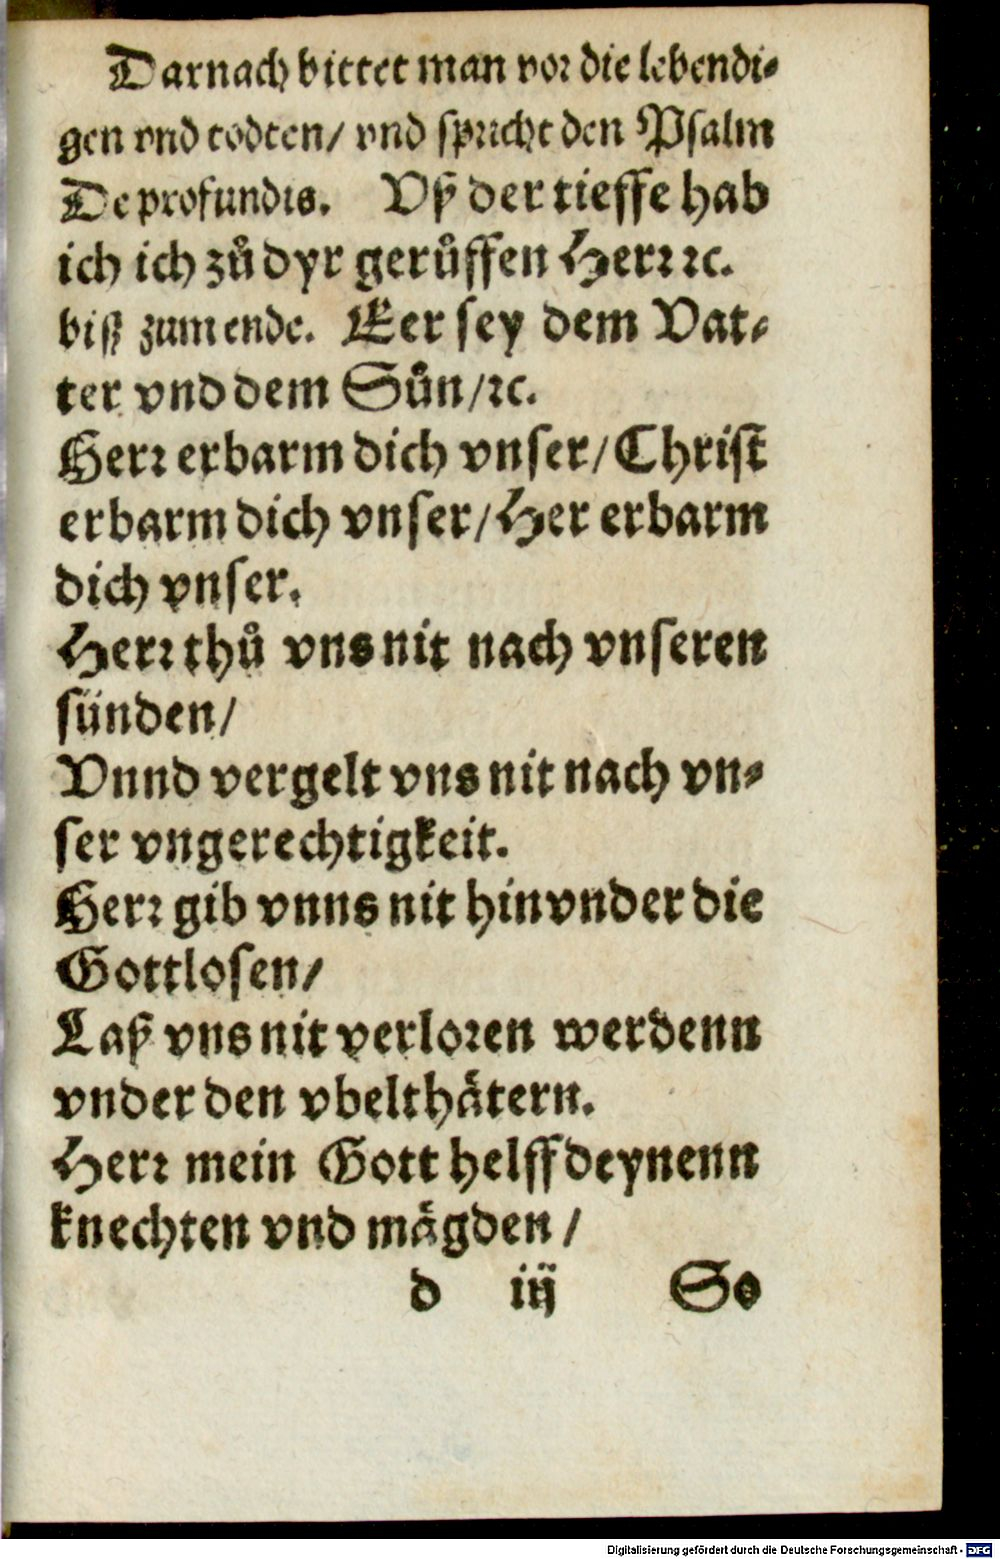 Darnach bittet man vor die lebendi⸗
gen vnd todten/ vnd spricht den Psalm
De profundis. Vß der tieffe hab
ich ich zů dyr gerůffen Herr ꝛc.
biß zum ende. Eer sey dem Vat⸗
ter vnd dem Sůn/ꝛc.
Herr erbarm dich vnser/Christ
erbarm dich vnser/Her erbarm
dich vnser.
Herr thů vns nit nach vnseren
sünden/
Vnnd vergelt vns nit nach vn⸗
ser vngerechtigkeit.
Herr gib vnns nit hin vnder die
Gottlosen/
Laß vns nit verloren werdenn
vnder den vbelthåtern.
Herr mein Gott helff deynenn
knechten vnd mågden/
d iij So
Digitalisierung gefördert durch die Deutsche Forschungsgemeinschaft - DFG